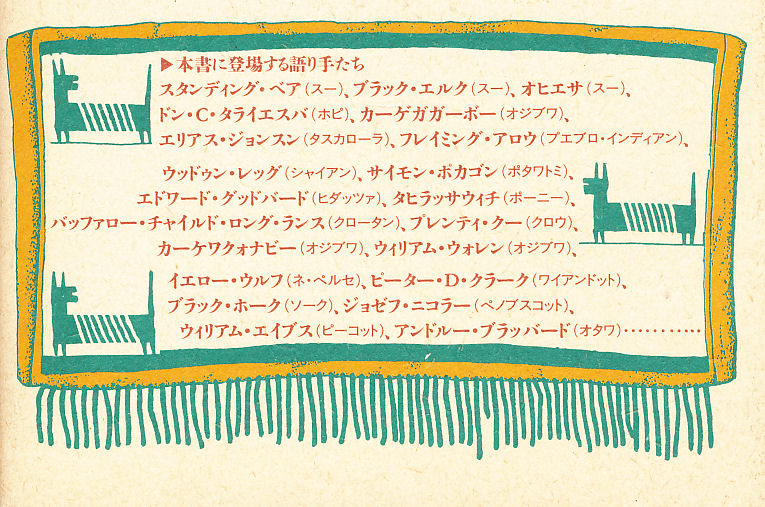 ▶本書に登場する語り手たち
スタンディング・ベア(スー)、ブラック・エルク(スー)、オヒエサ(スー)、
ドン・C・タライエスバ(ホピ)、カーゲガガーボー(オジブワ)、
エリアス・ジョンスン(タスカローラ)、フレイミング・アロウ(プエブロ・インディアン)、
ウッドゥン・レッグ(シャイアン)、サイモン・ポカゴン(ポタワトミ)、
エドワード・グッドバード(ヒダッツァ)、タヒラッサウィチ(ポーニー)、
バッファロー・チャイルド・ロング・ランス(クロータン)、プレンティ・クー(クロウ)、
カーケワクォナビー(オジブワ)、ウィリアム・ウォレン(オジブワ)、
イエロー・ウルフ(ネ・ペルセ)、ピーター・D・クラーク(ワイアンドット)、
ブラック・ホーク(ソーク)、ジョゼフ・ニコラー(ペノブスコット)、
ウィリアム・エイプス(ピーコット)、アンドルー・ブラッバード(オタワ)…………